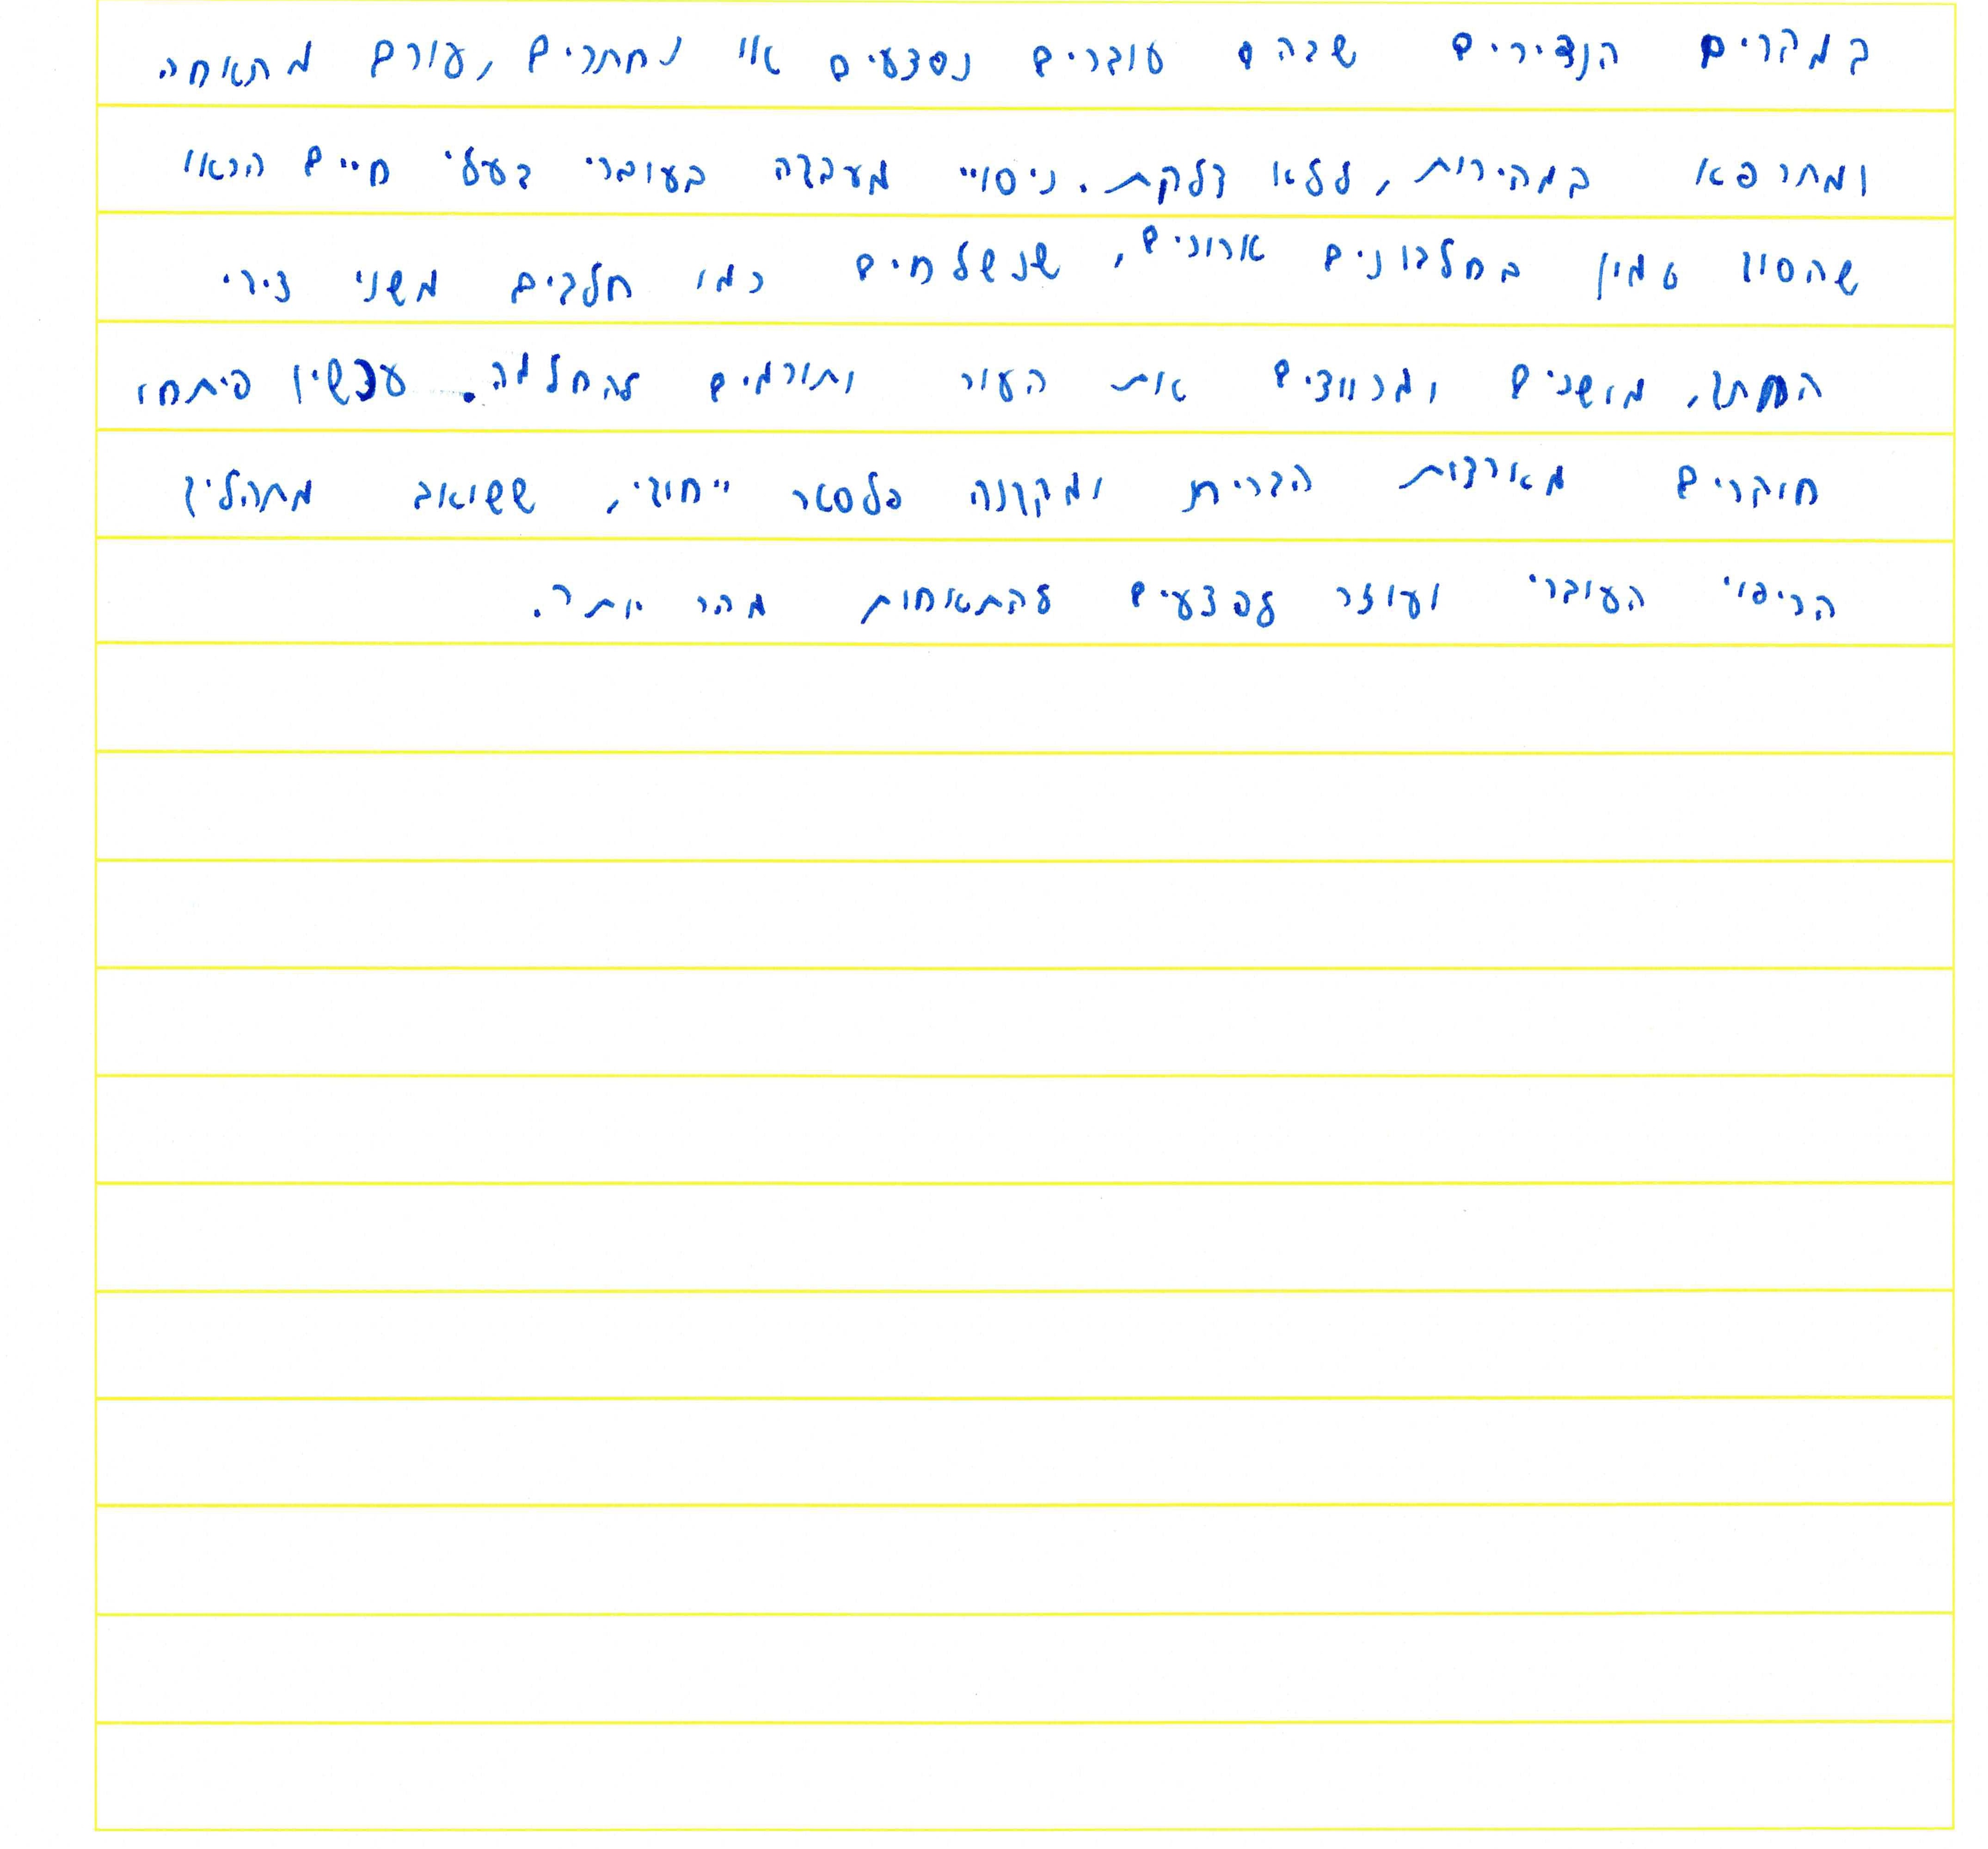 במקרים הנדירים שבהם עוברים נפצעים או נחתכים, עורם מתאחה
ומתרפא במהירות, ללא דלקת. ניסויי מעבדה בעוברי בעלי חיים הראו
שהסוד טמון בחלבונים ארוכים, שנשלחים כמו חבלים משני צידי
החתך, מושכים ומכווצים את העור ותורמים להחלמה. עכשיו פיתחו
חוקרים מארצות הברית ומקנדה פלסטר ייחודי, ששואב מתהליך
הריפוי העוברי ועוזר לפצעים להתאחות מהר יותר.